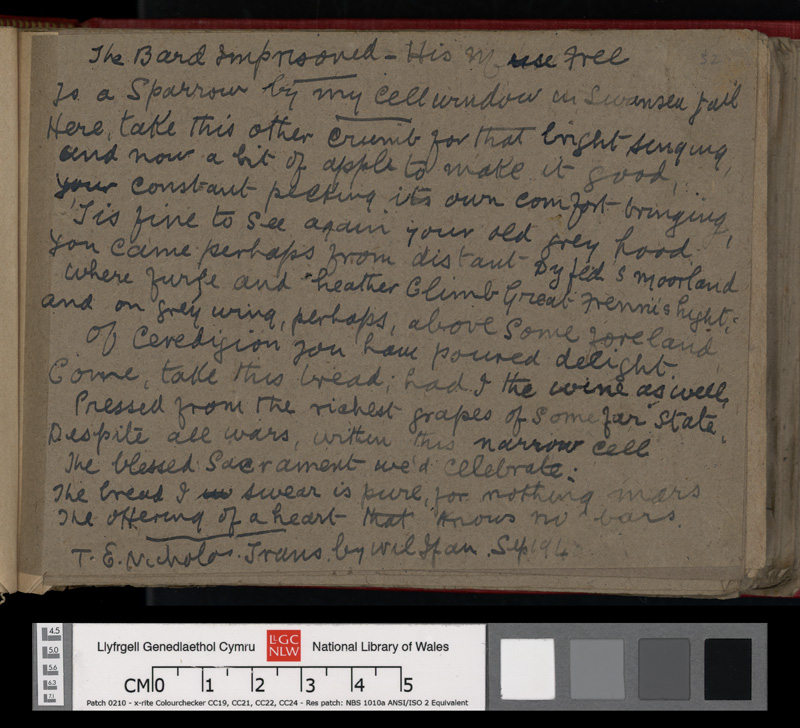 The Bard Imprisoned - His Muse Free
To a Sparrow by my cell window in Swansea Jail
Here, take this other crumb for that bright singing,
and now a bit of apple to make it good,
your constant pecking its own comfort bringing,
'Tis fine to see again your old grey hood.
You came perhaps from distant Dyfed's moorland
where furze and heather climb Great Frenni's hight,
and on grey wing, perhaps, above some foreland
Of Ceredigion you have poured delight.
Come, take this bread; had I the wine as well,
Pressed from the richest grapes of some far State,
Despite all wars, within this narrow cell
The blessed Sacrament we'd celebrate:
The bread I swear is pure, for nothing mars
The offering of a heart that knows no bars.
T. E. Nicholas. Trans. by Wil Ifan. Sep 194
4.5
5.0
5.6
6.3
7.1
Llyfrgell Genedlaethol Cymru LLGC NLW National Library of Wales
CM 0 1 2 3 4 5
Patch 0210 - x-rite Colourchecker CC19, CC21, CC22, CC24 - Res patch: NBS 1010a ANSI/ISO 2 Equivalent